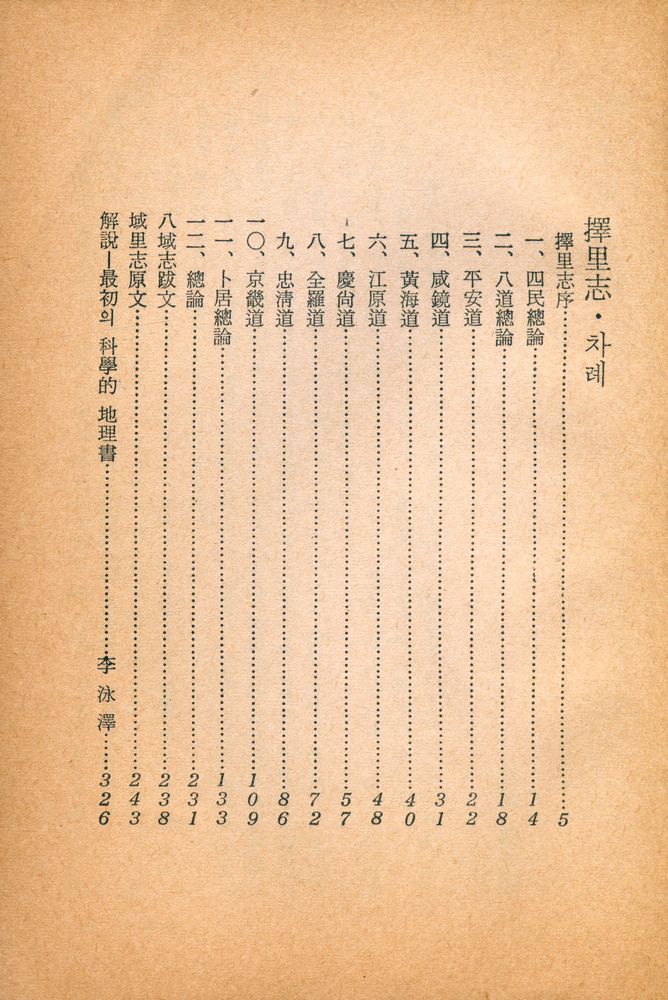 擇里志・차례
擇里志序 5
一、四民總論 14
二、八道總論 18
三、平安道 22
四、咸鏡道 31
五、黃海道 40
六、江原道 48
七、慶尙道 57
八、全羅道 72
九、忠淸道 86
一〇、京畿道 109
一一、卜居總論 133
一二、總論 231
八域志跋文 238
域里志原文 243
解說―最初의 科學的 地理書 李泳澤 326